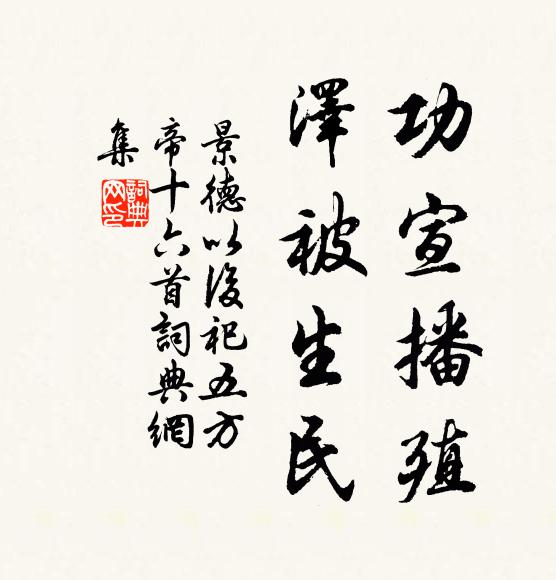 功宣播殖
澤被生民
景德以後祀五方
帝十六首詞典網
集
詞典
网印